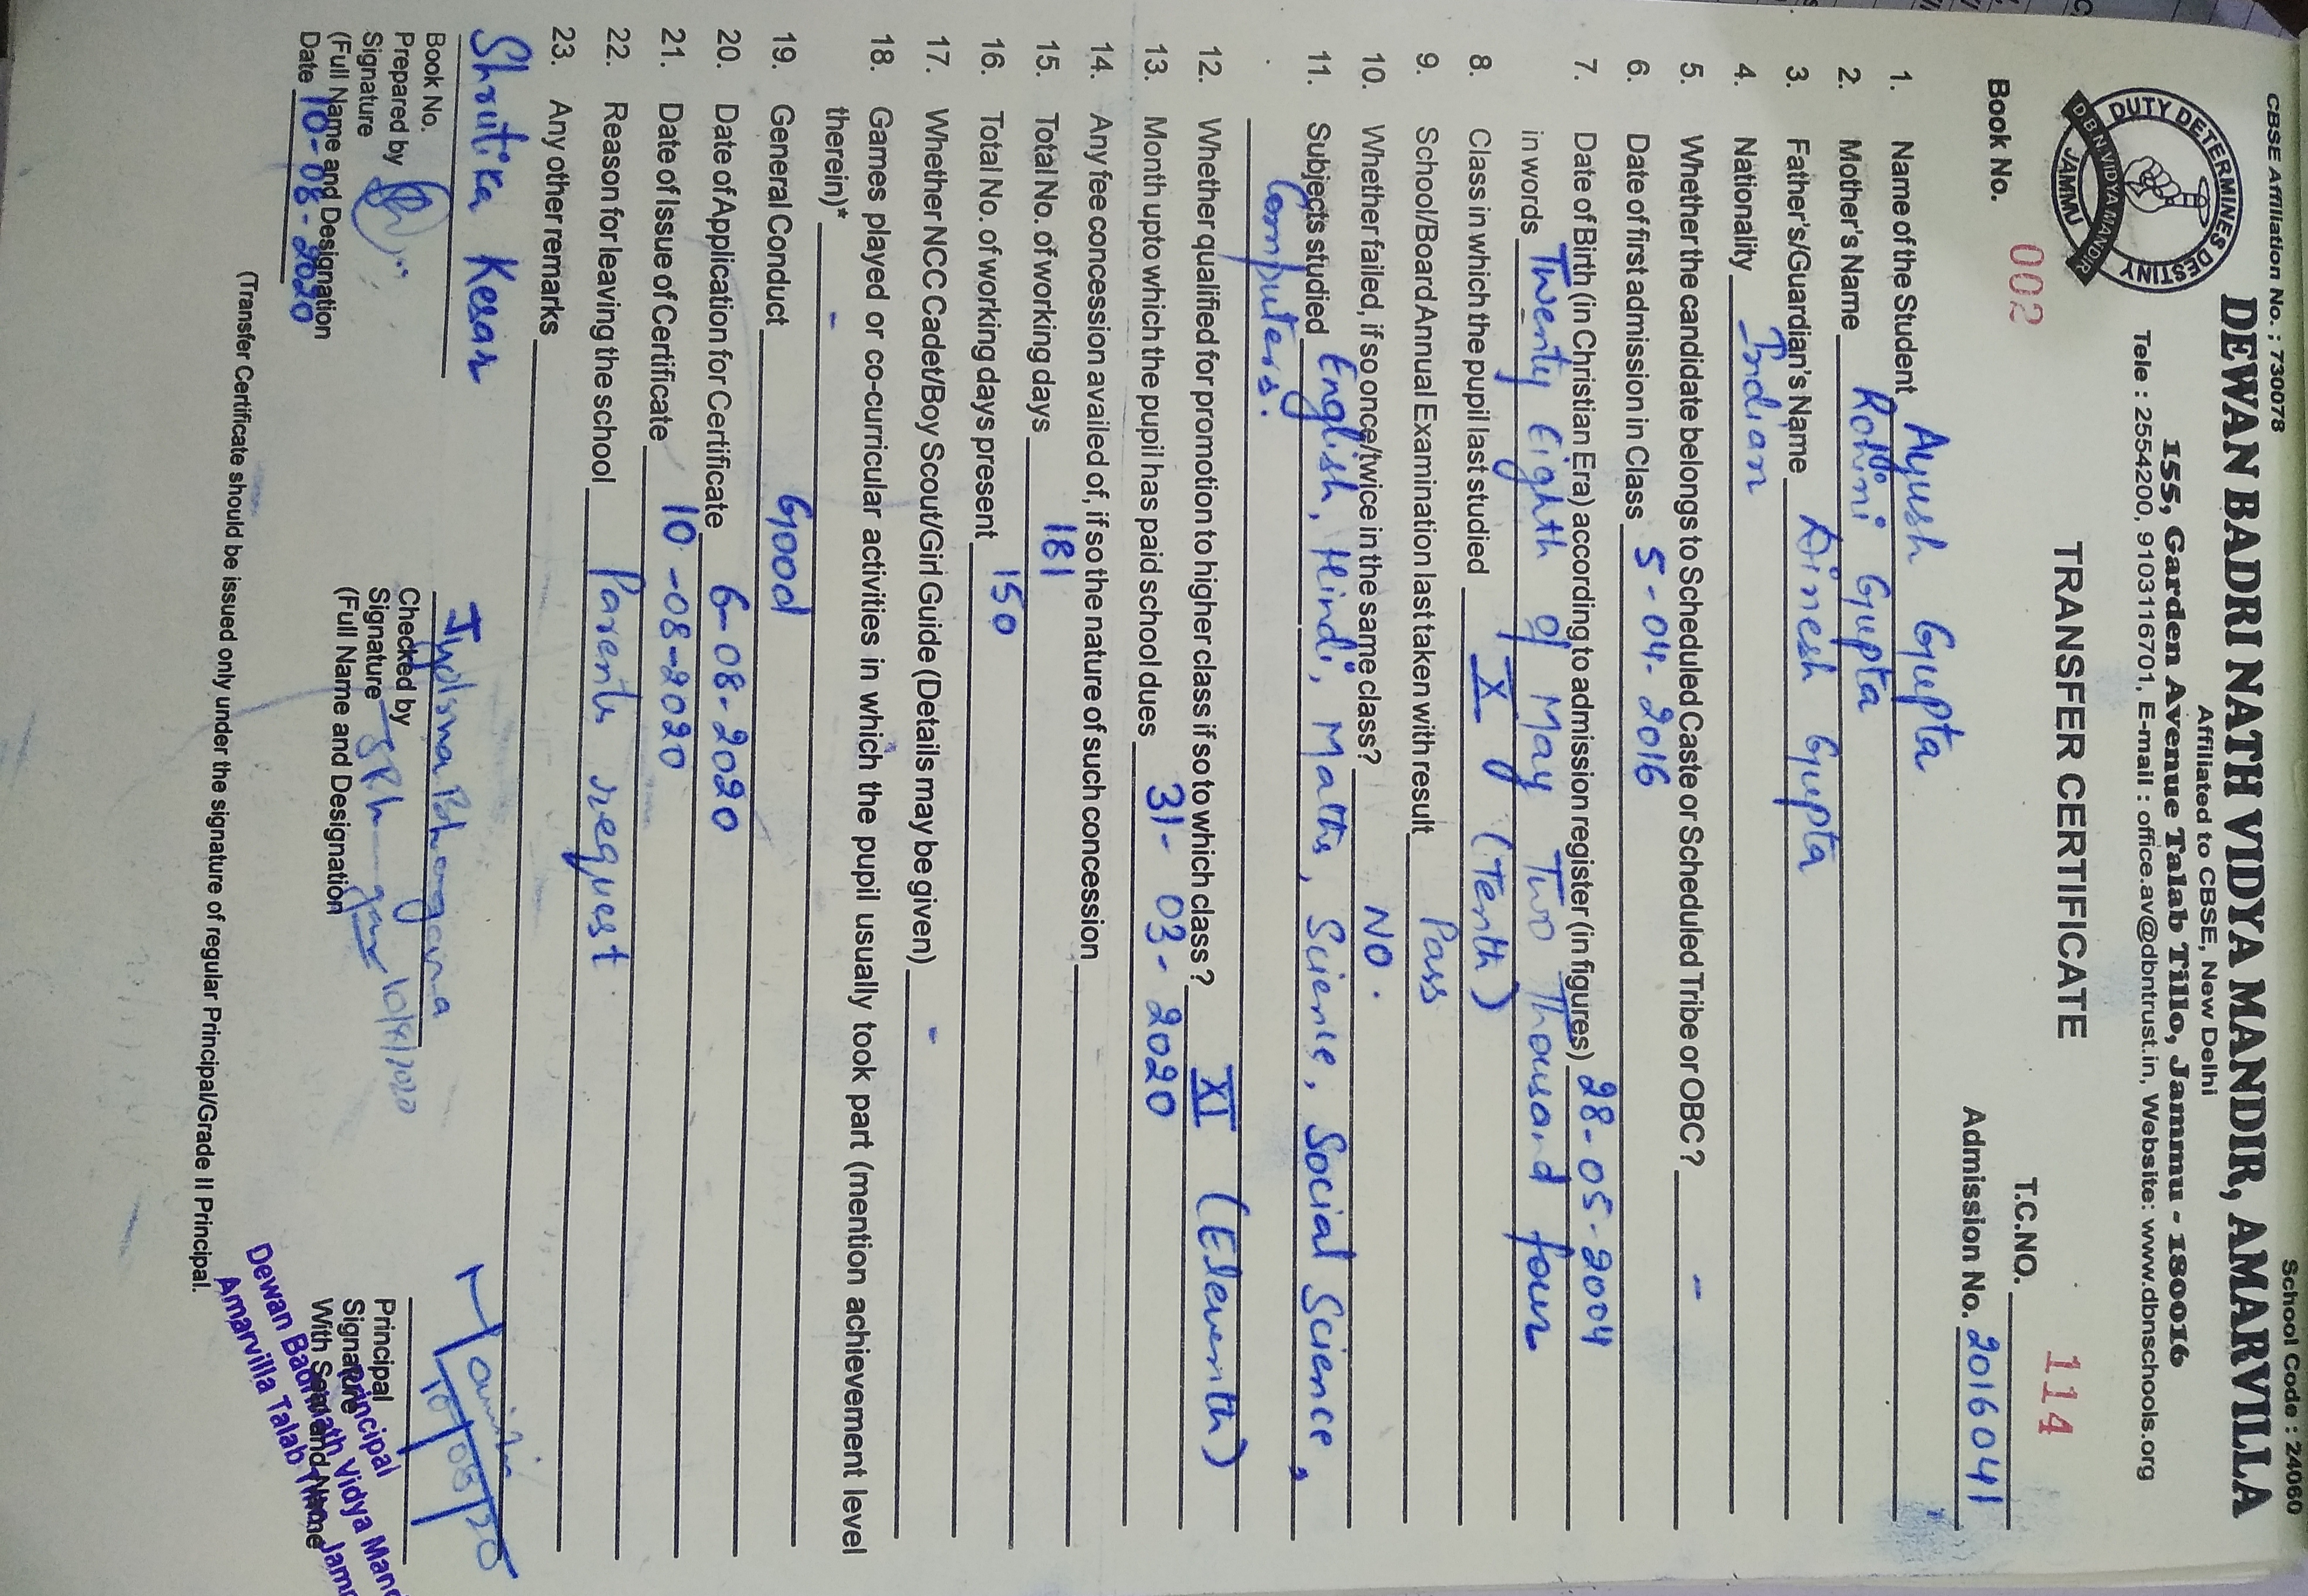 CBSE Affiliation No. : 730078 School Code : 24060
DEWAN BADRI NATH VIDYA MANDIR, AMARVILLA
Affiliated to CBSE, New Delhi
155, Garden Avenue Talab Tillo, Jammu - 180016
Tele : 2554200, 9103116701, E-mail : office.av@dbntrust.in, Website: www.dbnschools.org
DUTY DETERMINES DESTINY
D B N VIDYA MANDIR
JAMMU
TRANSFER CERTIFICATE
T.C.NO. 114
Book No. 002 Admission No. 2016041
1. Name of the Student Ayush Gupta
2. Mother's Name Rohini Gupta
3. Father's/Guardian's Name Dinesh Gupta
4. Nationality Indian
5. Whether the candidate belongs to Scheduled Caste or Scheduled Tribe or OBC ? -
6. Date of first admission in Class 5-04-2016
7. Date of Birth (in Christian Era) according to admission register (in figures) 28-05-2004
in words Twenty Eighth of May Two Thousand four
8. Class in which the pupil last studied X (Tenth)
9. School/Board Annual Examination last taken with result Pass
10. Whether failed, if so once/twice in the same class? NO.
11. Subjects studied English, Hindi, Maths, Science, Social Science,
Computers.
12. Whether qualified for promotion to higher class if so to which class? XI (Eleventh)
13. Month upto which the pupil has paid school dues 31-03-2020
14. Any fee concession availed of, if so the nature of such concession
15. Total No. of working days 181
16. Total No. of working days present 150
17. Whether NCC Cadet/Boy Scout/Girl Guide (Details may be given) -
18. Games played or co-curricular activities in which the pupil usually took part (mention achievement level
therein)* -
19. General Conduct Good
20. Date of Application for Certificate 6-08-2020
21. Date of Issue of Certificate 10-08-2020
22. Reason for leaving the school Parents request
23. Any other remarks
Shrutika Kesar
Book No.
Prepared by
Signature
(Full Name and Designation
Date 10-08-2020
Checked by
Signature 10/8/2020
(Full Name and Designation
10/08/20
Principal
Signature
With Seal and Name
Principal
Dewan Badri Nath Vidya Mand
Amarvilla Talab Tillo, Jam
(Transfer Certificate should be issued only under the signature of regular Principal/Grade II Principal.